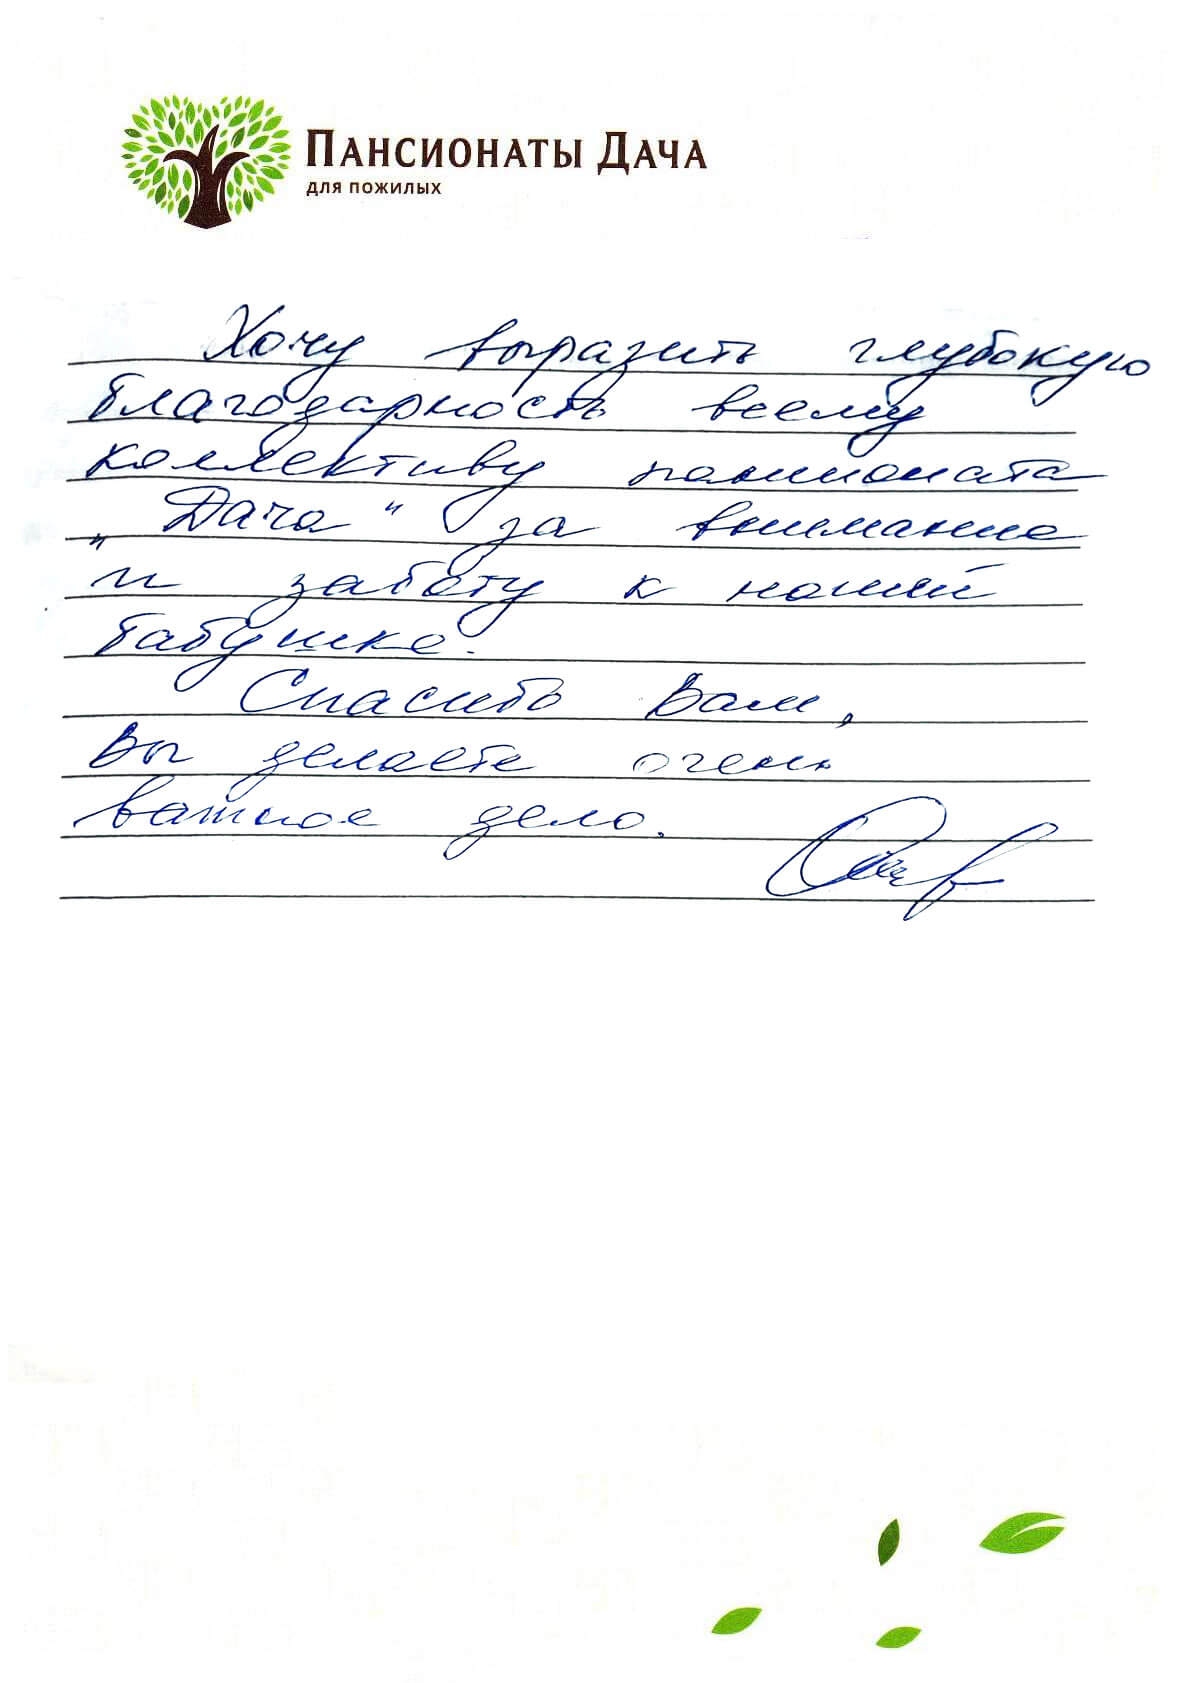 ПАНСИОНАТЫ ДАЧА
ДЛЯ ПОЖИЛЫХ
Хочу выразить глубокую
благодарность всему
коллективу пансионата
„Дача“ за внимание
и заботу к нашей
бабушке.
Спасибо Вам,
Вы делаете очень
важное дело.